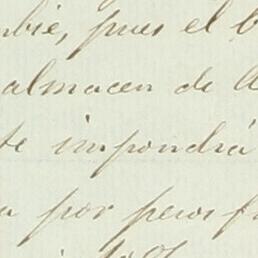 mbie, pues el b
almacen de
te impondrá
a por pesos f